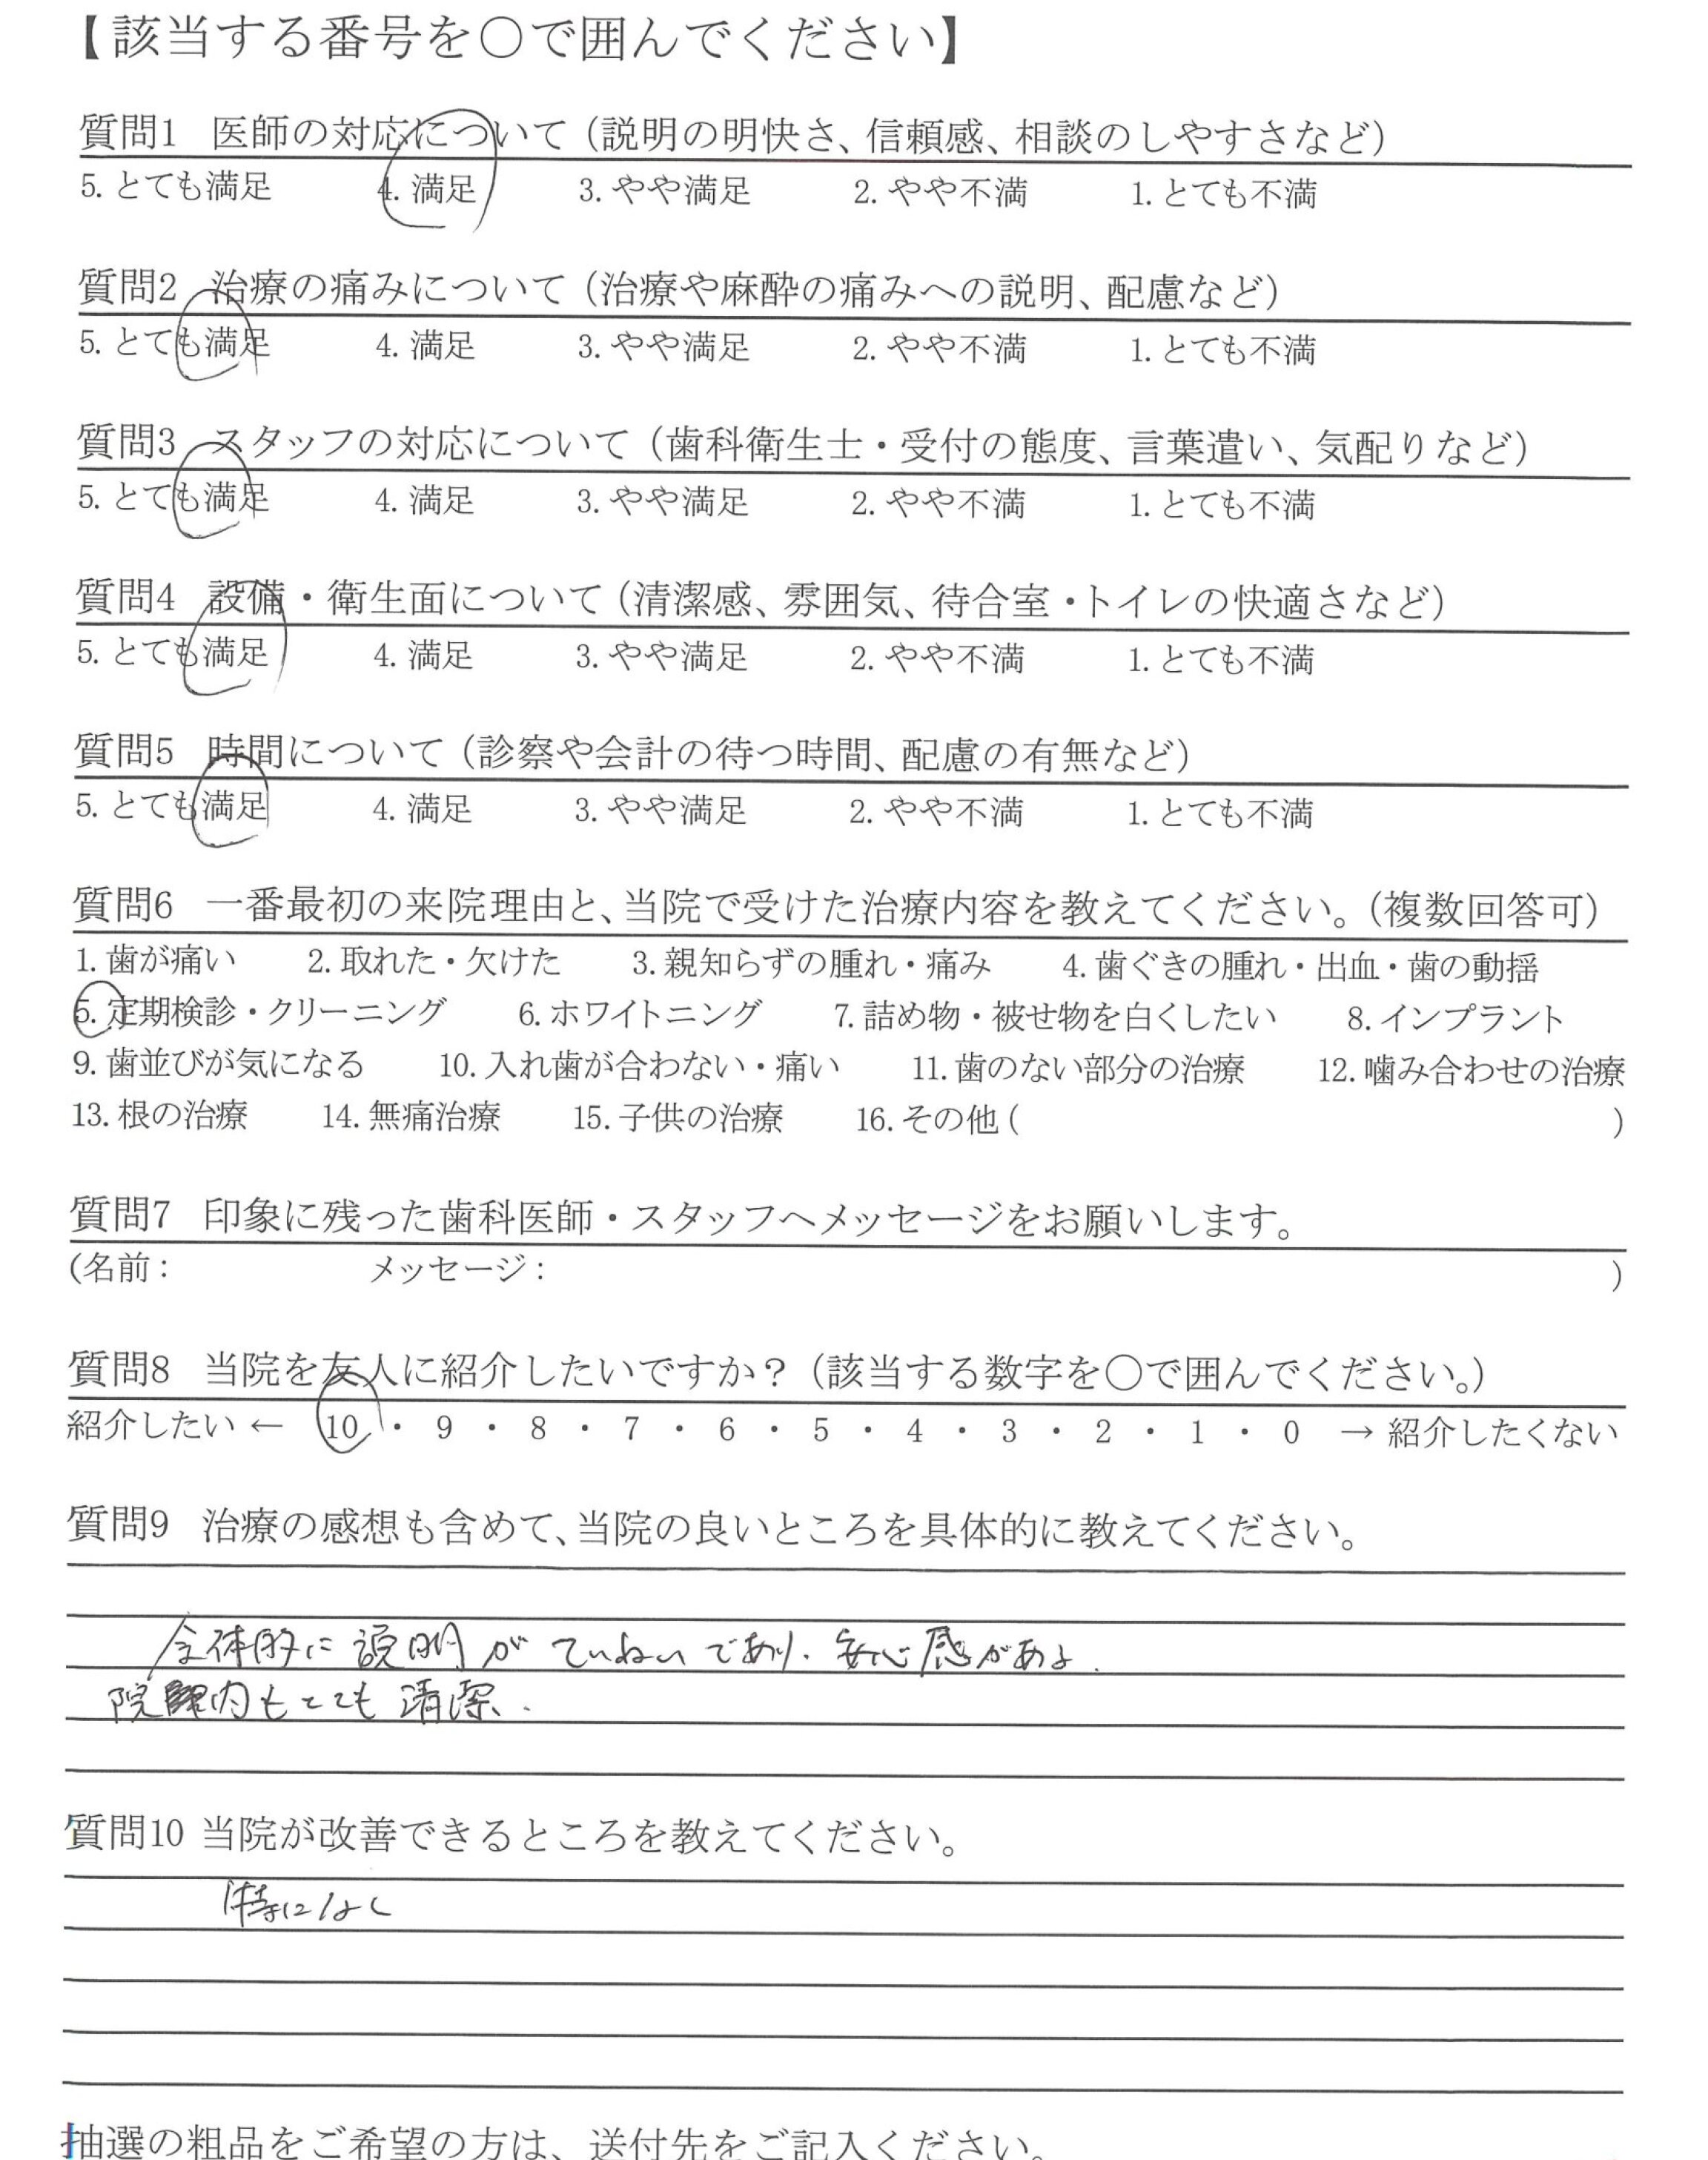 【該当する番号を〇で囲んでください】
質問1 医師の対応について（説明の明快さ、信頼感、相談のしやすさなど）
5. とても満足 4. 満足 3. やや満足 2. やや不満 1. とても不満
質問2 治療の痛みについて（治療や麻酔の痛みへの説明、配慮など）
5. とても満足 4. 満足 3. やや満足 2. やや不満 1. とても不満
質問3 スタッフの対応について（歯科衛生士・受付の態度、言葉遣い、気配りなど）
5. とても満足 4. 満足 3. やや満足 2. やや不満 1. とても不満
質問4 設備・衛生面について（清潔感、雰囲気、待合室・トイレの快適さなど）
5. とても満足 4. 満足 3. やや満足 2. やや不満 1. とても不満
質問5 時間について（診察や会計の待つ時間、配慮の有無など）
5. とても満足 4. 満足 3. やや満足 2. やや不満 1. とても不満
質問6 一番最初の来院理由と、当院で受けた治療内容を教えてください。（複数回答可）
1. 歯が痛い 2. 取れた・欠けた 3. 親知らずの腫れ・痛み 4. 歯ぐきの腫れ・出血・歯の動揺
5. 定期検診・クリーニング 6. ホワイトニング 7. 詰め物・被せ物を白くしたい 8. インプラント
9. 歯並びが気になる 10. 入れ歯が合わない・痛い 11. 歯のない部分の治療 12. 噛み合わせの治療
13. 根の治療 14. 無痛治療 15. 子供の治療 16. その他 ( )
質問7 印象に残った歯科医師・スタッフへメッセージをお願いします。
(名前： メッセージ： )
質問8 当院を友人に紹介したいですか？（該当する数字を〇で囲んでください。）
紹介したい ← 10 ・ 9 ・ 8 ・ 7 ・ 6 ・ 5 ・ 4 ・ 3 ・ 2 ・ 1 ・ 0 → 紹介したくない
質問9 治療の感想も含めて、当院の良いところを具体的に教えてください。
全体的に説明がていねいであり、安心感がある.
院内もとても清潔.
質問10 当院が改善できるところを教えてください。
特になし
抽選の粗品をご希望の方は、送付先をご記入ください。